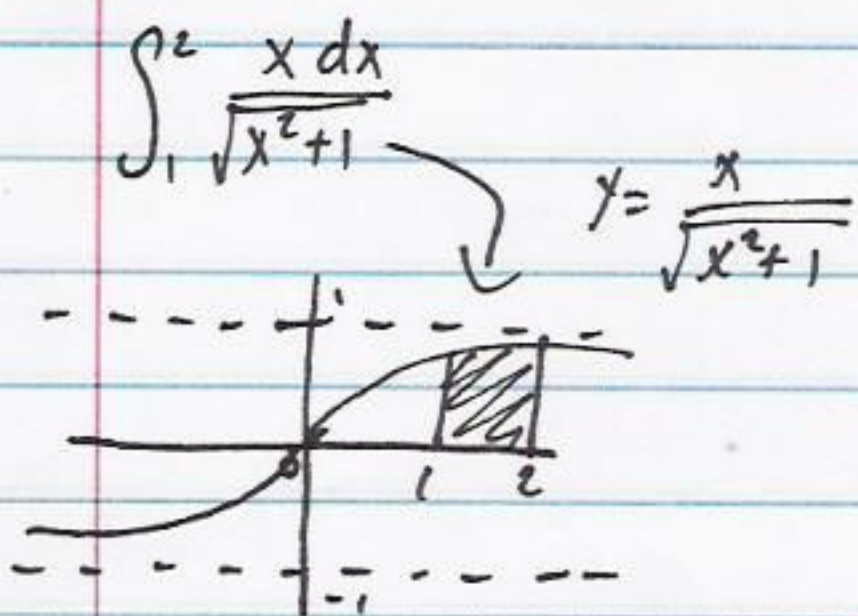 ∫₁² x dx / √(x²+1)
y = x / √(x²+1)
1
1 2
-1